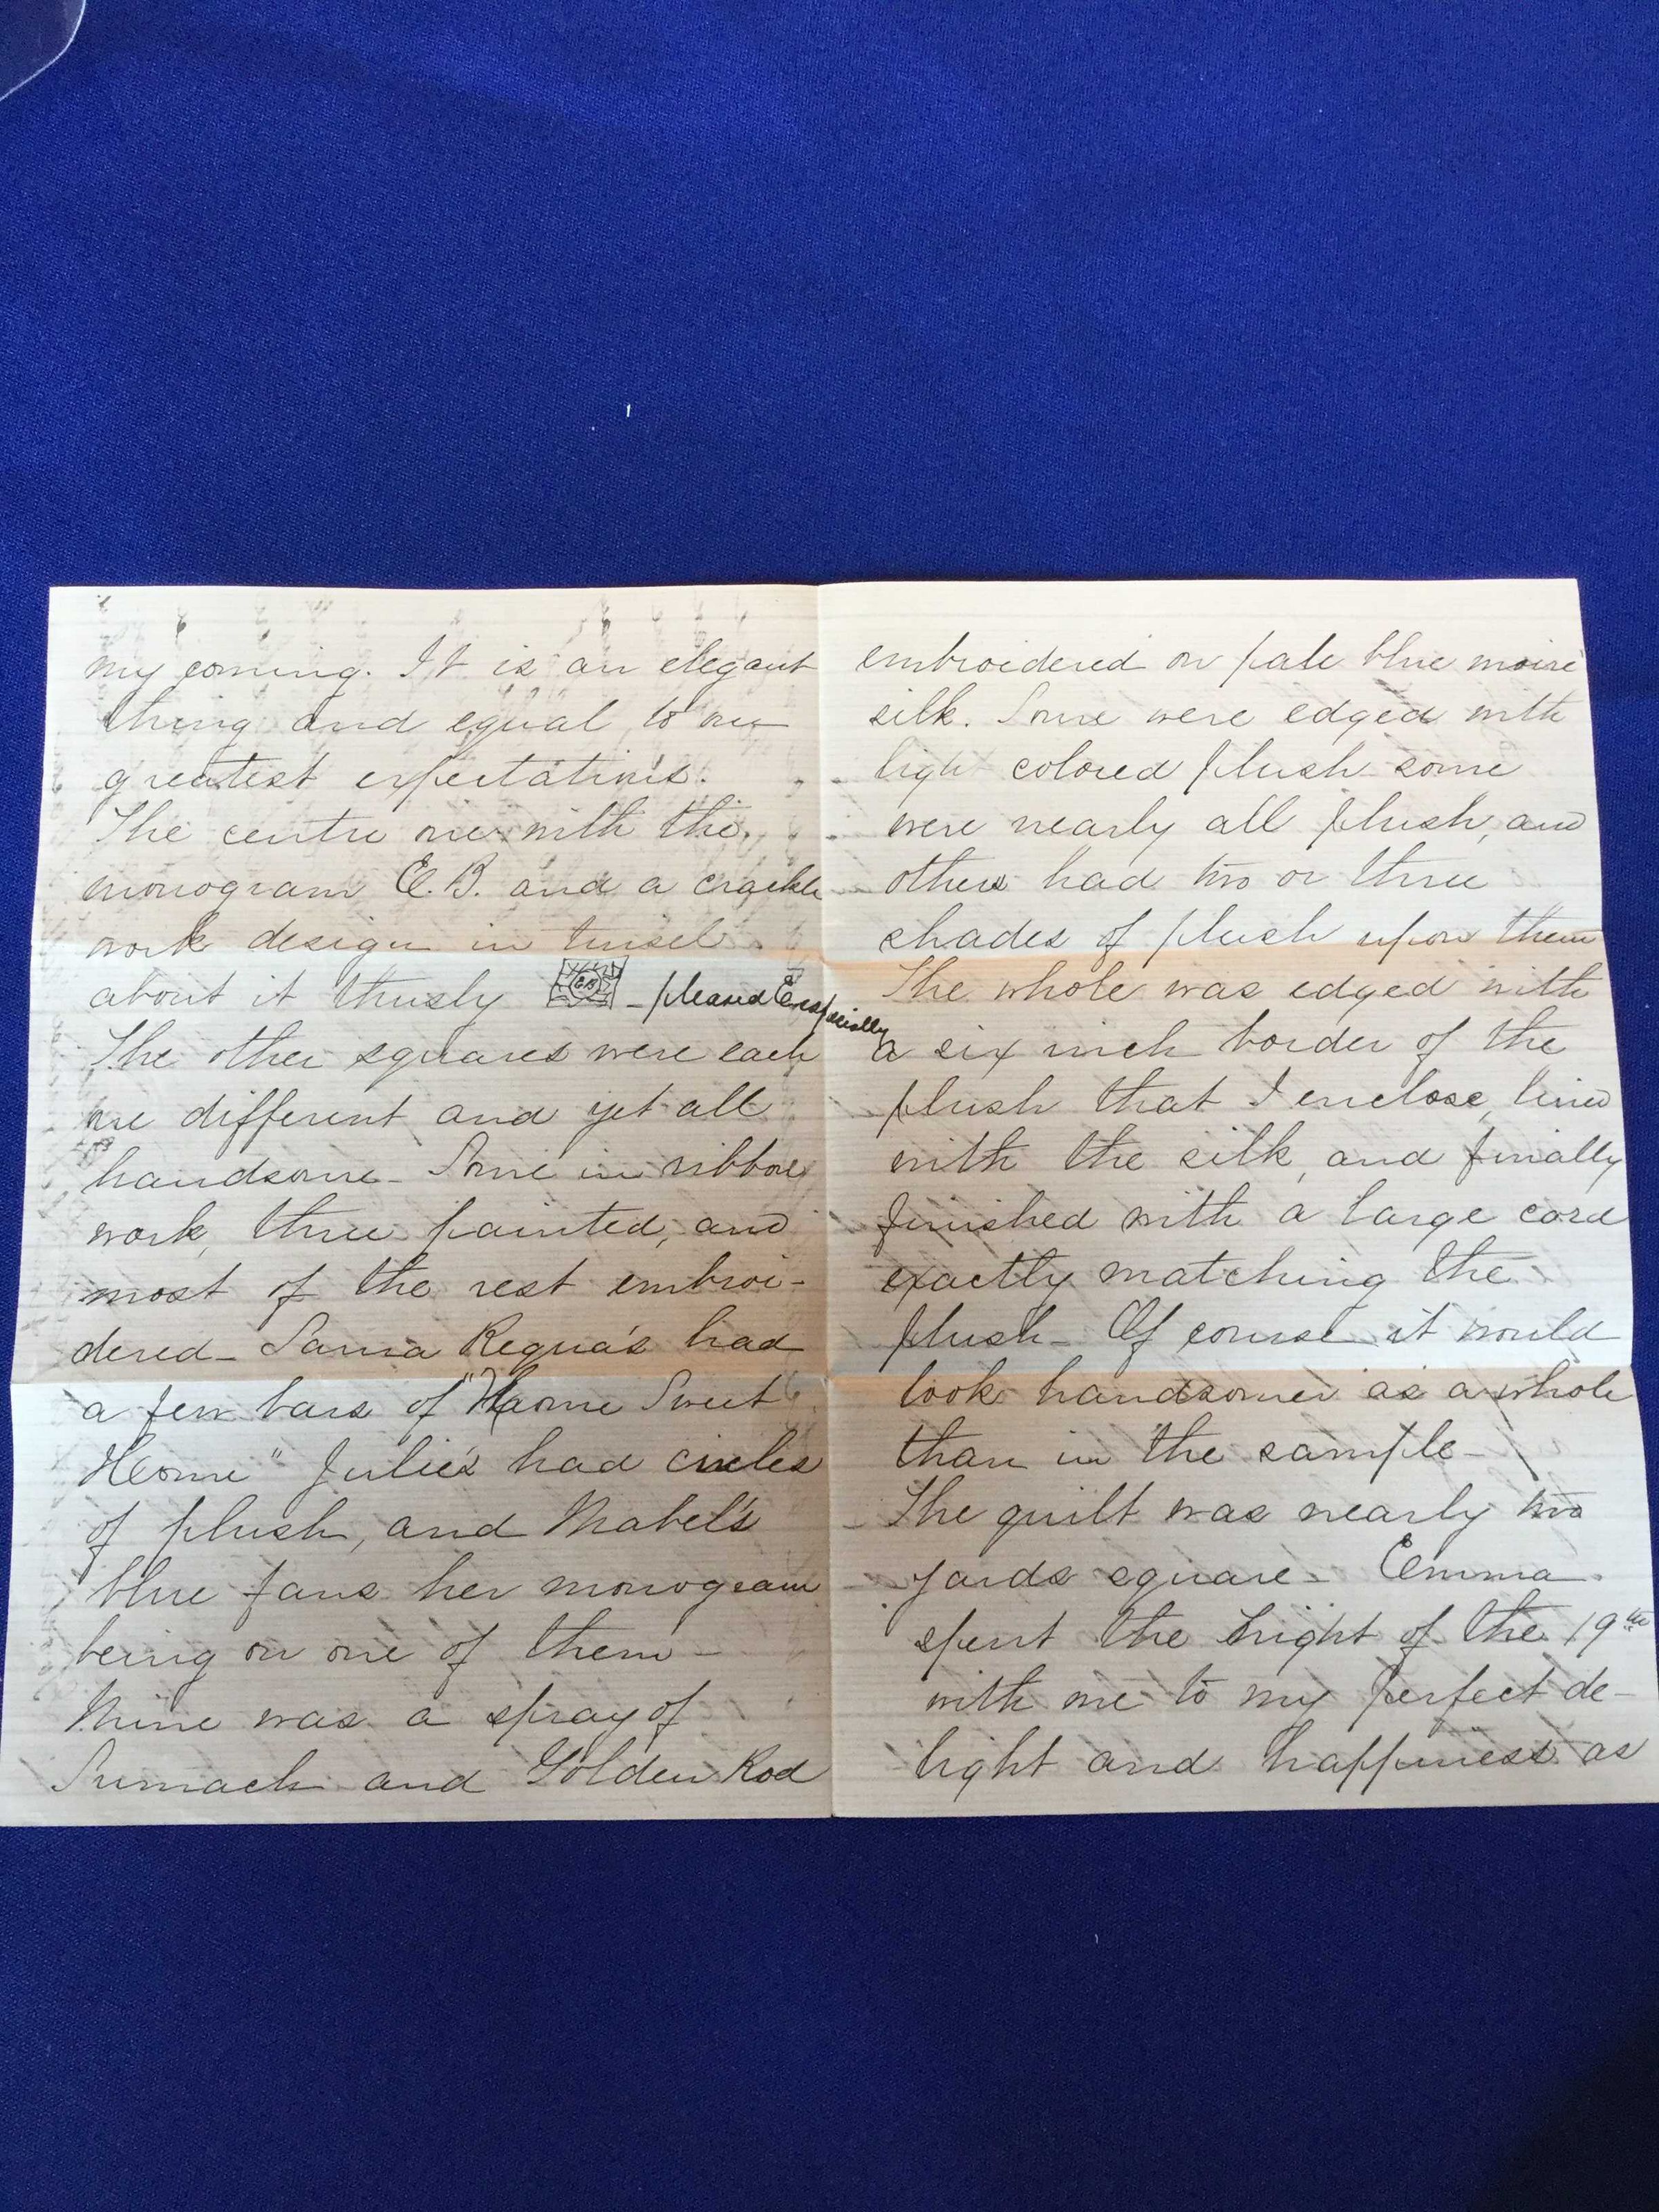 my coming. It is an elegant
thing and equal to my
greatest expectations.
The centre one with the
monogram E. B. and a crackle
work design in tinsel
about it thusly E.B - pleased E. especially
The other squares were each
one different and yet all
handsome - Some in ribbon
work, three painted, and
most of the rest embroi-
dered - Requa's had
a few bars of "Home Sweet
Home" Julie's had circles
of plush, and Mabel's
blue fans her monogram
being on one of them -
Mine was a spray of
Sumach and Golden Rod
embroidered on pale blue moire
silk. Some were edged with
light colored plush some
were nearly all plush, and
others had two or three
shades of plush upon them
The whole was edged with
a six inch border of the
plush that I enclose, lined
with the silk, and finally
finished with a large cord
exactly matching the
plush - Of course it would
look handsomer as a whole
than in the sample -
The quilt was nearly two
yards square - Emma
spent the night of the 19th
with me to my perfect de-
light and happiness as